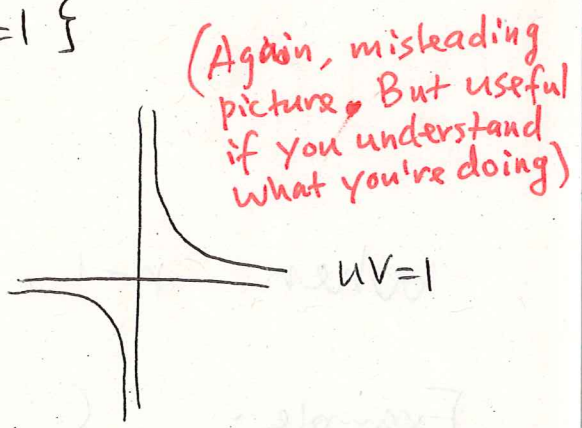 =1 }
(Again, misleading
picture. But useful
if you understand
what you're doing)
uv=1